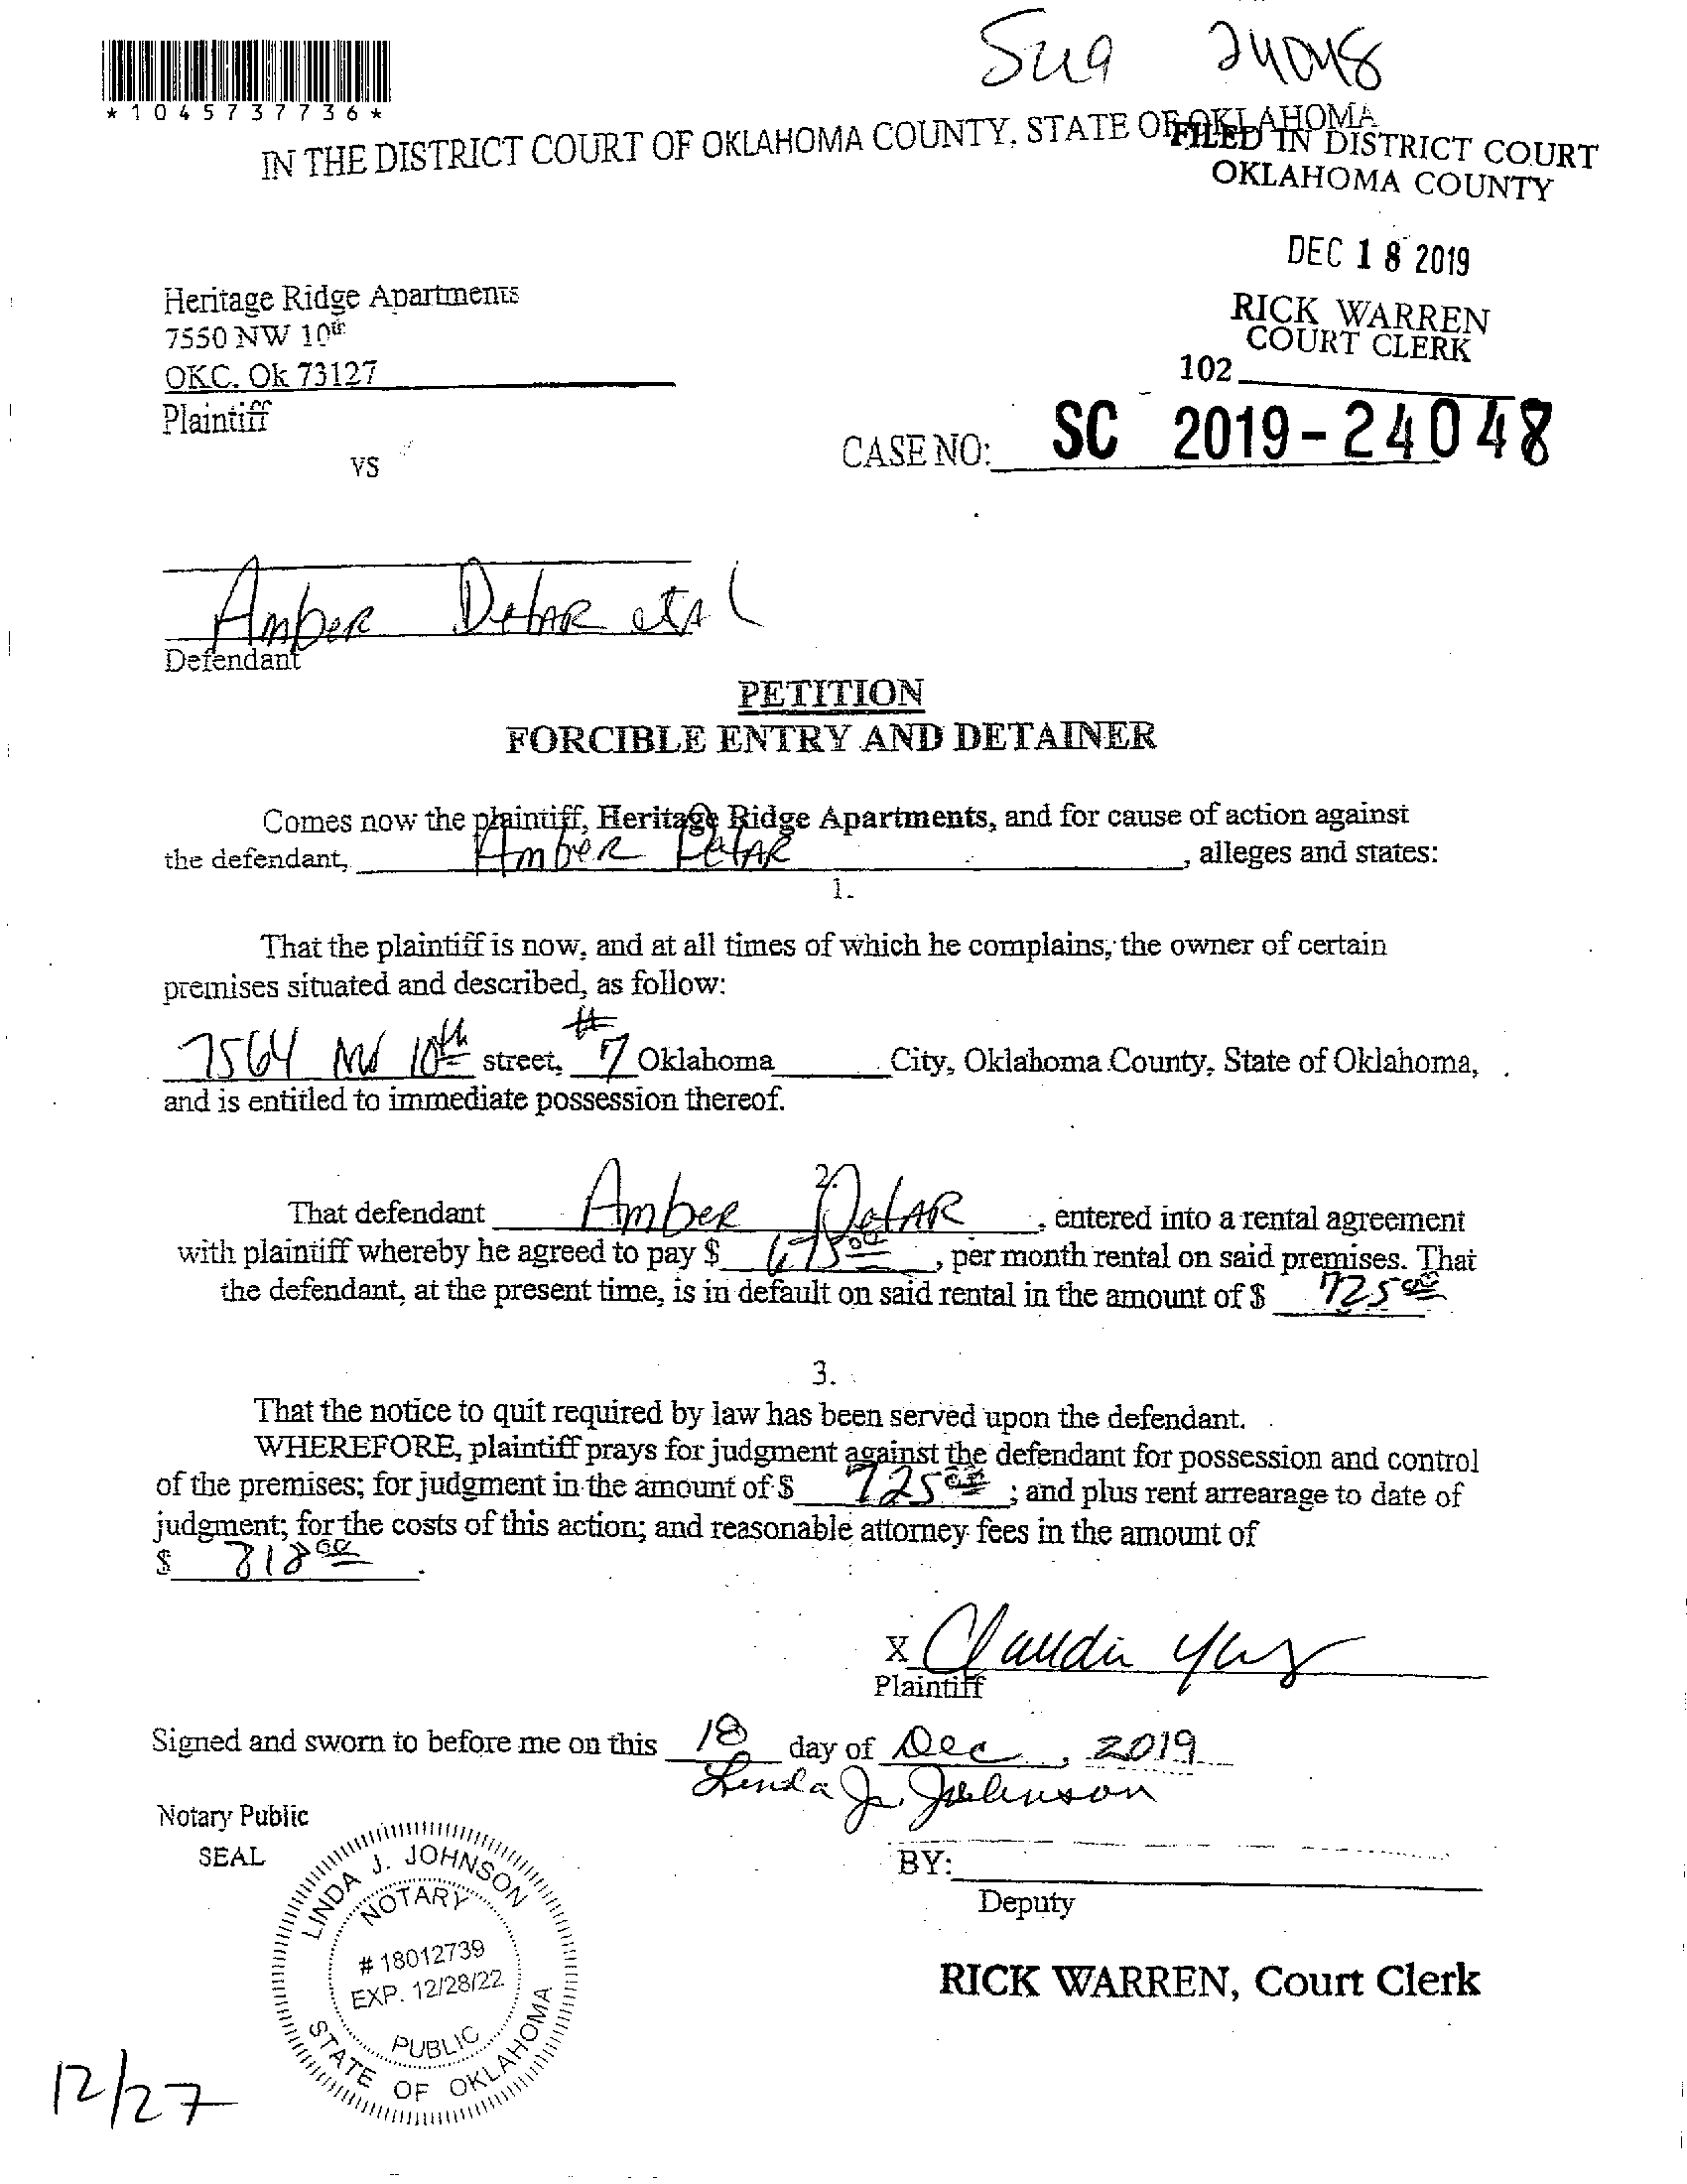 Sua 24048
*1045737736*
IN THE DISTRICT COURT OF OKLAHOMA COUNTY, STATE OF OKLAHOMA
FILED IN DISTRICT COURT
OKLAHOMA COUNTY
DEC 18 2019
RICK WARREN
COURT CLERK
102
Heritage Ridge Apartments
7550 NW 10th
OKC, Ok 73127
Plaintiff
vs
CASE NO: SC 2019-24048
Amber Detar etal
Defendant
PETITION
FORCIBLE ENTRY AND DETAINER
Comes now the plaintiff, Heritage Ridge Apartments, and for cause of action against
the defendant, Amber Detar, alleges and states:
1.
That the plaintiff is now, and at all times of which he complains, the owner of certain
premises situated and described, as follow:
7564 NW 10th street, #7 Oklahoma City, Oklahoma County, State of Oklahoma,
and is entitled to immediate possession thereof.
2.
That defendant Amber Detar, entered into a rental agreement
with plaintiff whereby he agreed to pay $ 675 00, per month rental on said premises. That
the defendant, at the present time, is in default on said rental in the amount of $ 725 00
3.
That the notice to quit required by law has been served upon the defendant.
WHEREFORE, plaintiff prays for judgment against the defendant for possession and control
of the premises; for judgment in the amount of $ 725 00; and plus rent arrearage to date of
judgment; for the costs of this action; and reasonable attorney fees in the amount of
$ 818 00.
X Claudia
Plaintiff
Signed and sworn to before me on this 18 day of Dec, 2019
Linda J. Johnson
Notary Public
SEAL
LINDA J. JOHNSON
NOTARY
# 18012739
EXP. 12/28/22
PUBLIC
STATE OF OKLAHOMA
BY:
Deputy
RICK WARREN, Court Clerk
12/27